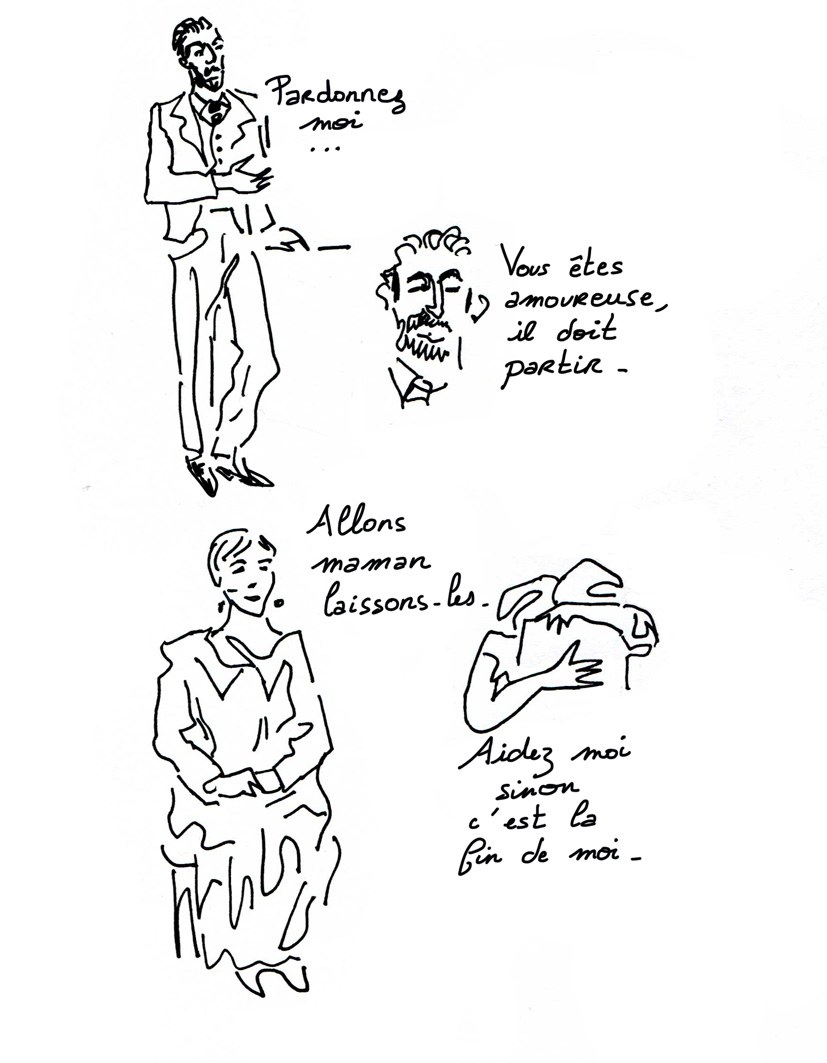 Pardonnez
moi
...
Vous êtes
amoureuse,
il doit
partir -
Allons
maman
laissons-les.
Aidez moi
sinon
c'est la
fin de moi -